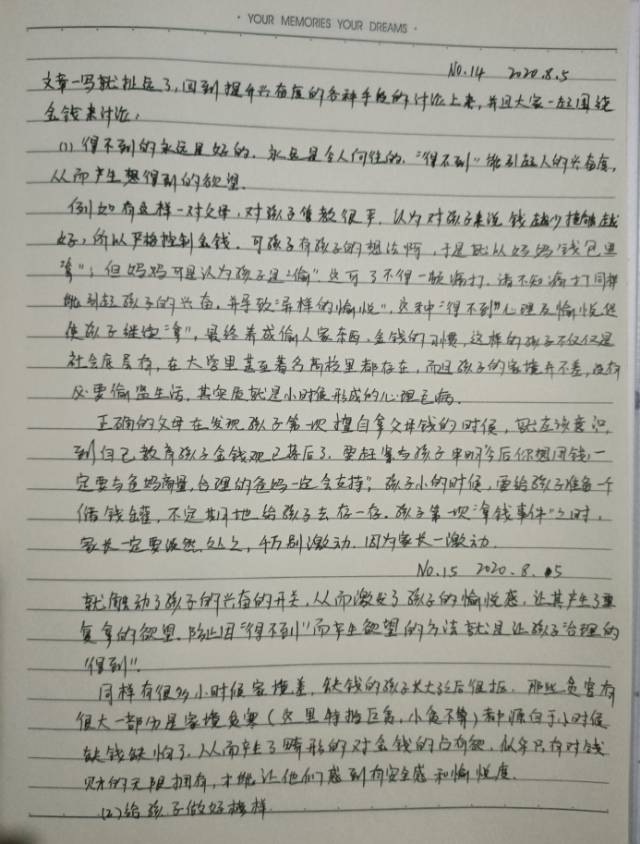 · YOUR MEMORIES YOUR DREAMS ·
No.14 2020.8.5
文章一写就扯远了,回到提升兴奋度的各种手段的讨论上来,并且大家一起围绕
金钱来讨论:
(1) 得不到的永远是好的,永远是令人向往的,"得不到"能引起人的兴奋度,
从而产生想得到的欲望。
例如有这样一对父母,对孩子管教很严,认为对孩子来说钱越少接触越
好,所以严格控制金钱。可孩子有孩子的想法啊,于是就从妈妈钱包里
"拿";但妈妈可是认为孩子是"偷",这可了不得一顿痛打,请不知痛打同样
能引起孩子的兴奋,并导致"异样的愉悦",这种"得不到"心理及愉悦促
使孩子继续"拿",最终养成偷人家东西、金钱的习惯,这样的孩子不仅仅是
社会底层有,在大学里甚至著名高校里都存在,而且孩子的家境并不差,没有
必要偷盗生活,其实质就是小时候形成的心理毛病。
正确的父母在发现孩子第一次擅自拿父母钱的时候,就应该意识
到自己教育孩子金钱观已落后了,要赶紧与孩子申明"今后你想用钱,一
定要与爸妈商量,合理的爸妈一定会支持";孩子小的时候,要给孩子准备一个
储钱罐,不定期地给孩子去存一存。孩子第一次"拿钱事件"之时,
家长一定要淡然处之,千万别激动,因为家长一激动,
No.15 2020.8.05
就触动了孩子的兴奋的开关,从而激发了孩子的愉悦感,让其产生了重
复拿的欲望。防止因"得不到"而产生欲望的方法就是让孩子合理的
"得到"。
同样有很多小时候家境差,缺钱的孩子长大了后很抠。那些贪官有
很大一部分是家境贫寒(这里特指巨贪,小贪不算)都源自于小时候
缺钱缺怕了,从而产生了畸形的对金钱的占有欲,似乎只有对钱
财的无限拥有,才能让他们感到有安全感和愉悦度。
(2) 给孩子做好榜样